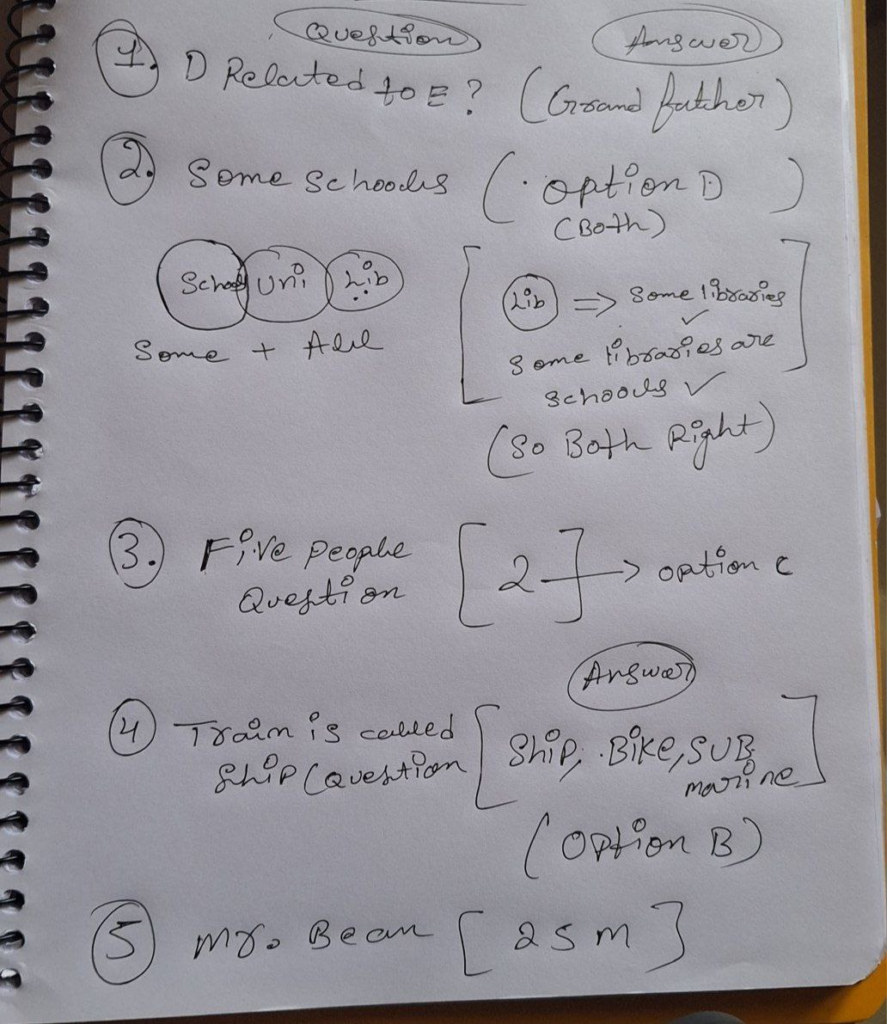 Question Answer
1. D Related to E? (Grand father)
2. Some schools (. option D )
(Both)
School Uni Lib
Some + All
[ Lib => Some libraries ✓
Some libraries are
schools ✓ ]
(So Both Right)
3. Five people
Question [2] → option c
Answer
4 Train is called
Ship (Question [Ship, Bike, SUB
marine]
(Option B)
5 Mr. Bean [25m]